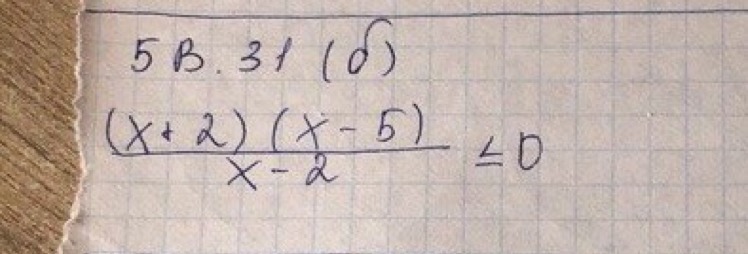 5В.31 (б)
(x+2)(x-5)
x-2
≤0